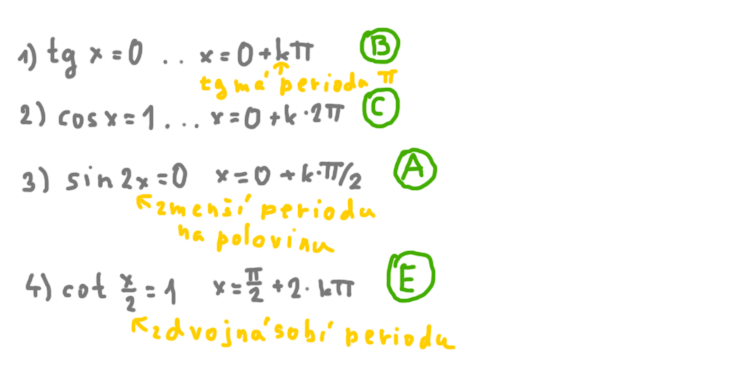 1) tg x = 0 .. x = 0 + kπ B
tg má perioda π
2) cos x = 1 ... x = 0 + k · 2π C
3) sin 2x = 0 x = 0 + k · π/2 A
zmenší periodu
na polovinu
4) cot x/2 = 1 x = π/2 + 2 · kπ E
zdvojnásobí periodu